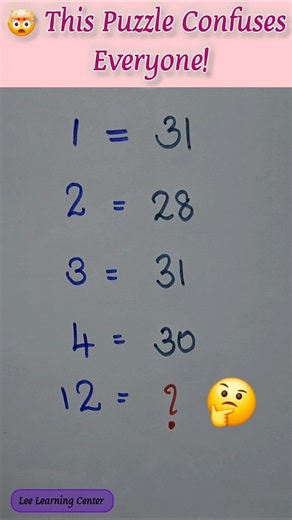 🤯 This Puzzle Confuses
Everyone!
1 = 31
2 = 28
3 = 31
4 = 30
12 = ?
Lee Learning Center